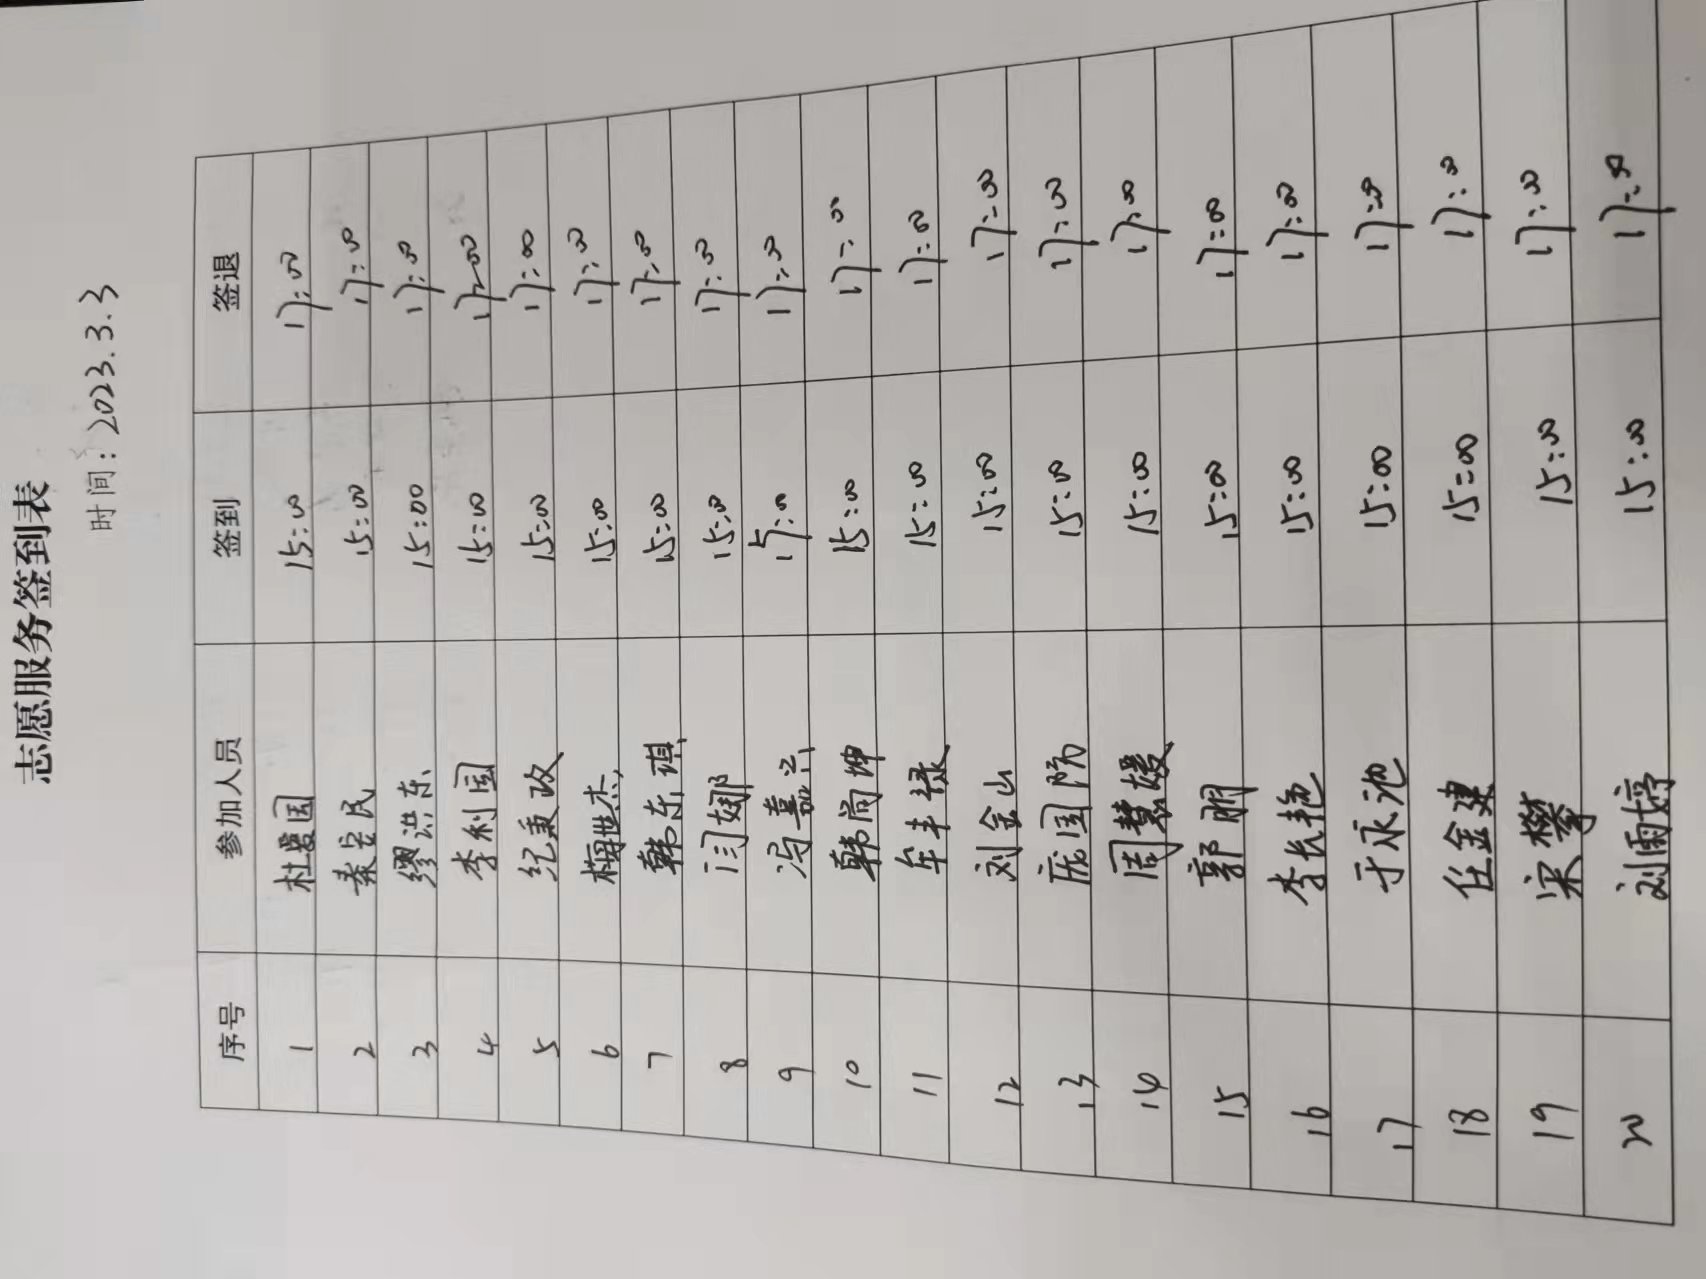 志愿服务签到表
时间：2023.3.3
序号 参加人员 签到 签退
1 杜爱国 15:00 17:00
2 秦安民 15:00 17:00
3 缪洪东 15:00 17:00
4 李利国 15:00 17:00
5 纪秉政 15:00 17:00
6 梅世杰 15:00 17:00
7 韩东琪 15:00 17:00
8 闫娜 15:00 17:00
9 冯嘉兴 15:00 17:00
10 韩尚坤 15:00 17:00
11 牟丰禄 15:00 17:00
12 刘金山 15:00 17:00
13 庞国防 15:00 17:00
14 周慧媛 15:00 17:00
15 郭朋 15:00 17:00
16 李长艳 15:00 17:00
17 于永池 15:00 17:00
18 任金建 15:00 17:00
19 宋攀 15:00 17:00
20 刘雨婷 15:00 17:00